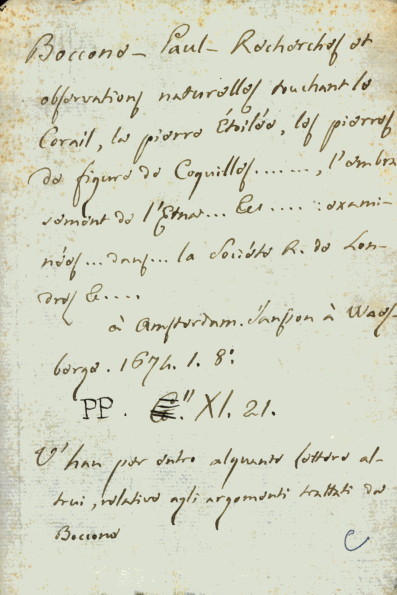 Boccone - Paul - Recherches et
observations naturelles touchant le
Corail, la pierre Étoilée, les pierres
de figure de Coquilles......., l'embra
sement de l'Etna... &c.... : exami-
nées...dans... la Société R. de Lon-
dres &....
à Amsterdam. Jansson à Waes-
berge. 1674. 1. 8°.
PP. XI. 21.
V'han per entro alquante lettere al-
trui, relative agli argomenti trattati da
Boccone